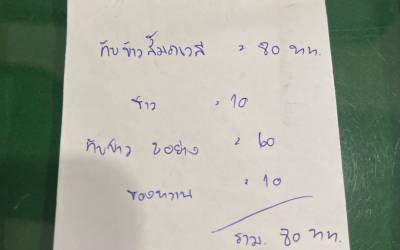 กับข้าวสัมภเวสี = 80 บาท.
ข้าว = 10
กับข้าว 2อย่าง = 60
ของหวาน = 10
รวม. 80 บาท.